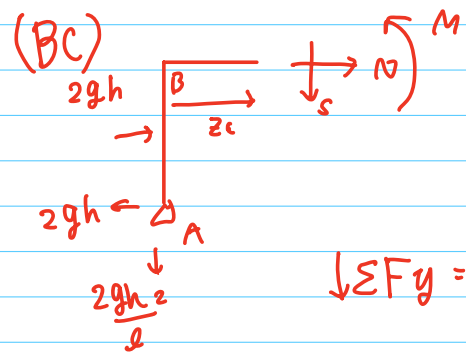 (BC)
2gh
B
N
M
S
Zc
2gh
A
2gh2
l
↓ΣFy =